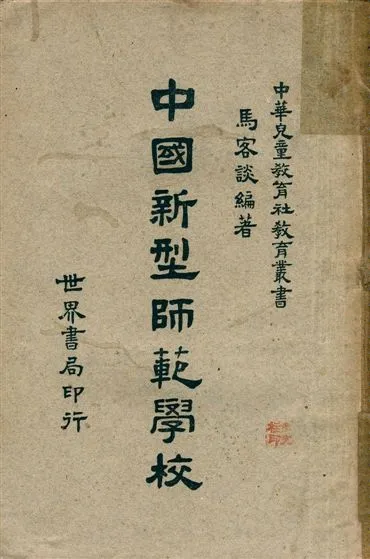 中華兒童教育社教育叢書
馬客談編著
中國新型師範學校
世界書局印行